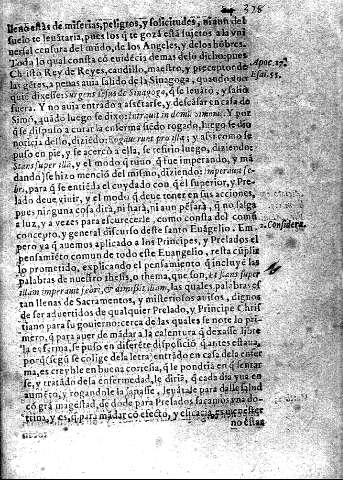 378
lleno estàs de miserias, peligros, y solicitudes, ni aun del
suelo te leuātaria, pues los q̃ te gozā està sujetos a la vni
uersal censura del mūdo, de los Angeles, y de los hōbres.
Toda lo qual consta cō euidēcia demas de lo dicho: pues
Christo Rey de Reyes, caudillo, maestro, y preceptor de
las gētes, a penas auia salido de la Sinagoga, quando, por
que dixesse: surgens Iesus de Sinagoga, q̃ se leuātò, y salio
fuera. Y no auia entrado a assētarse, y descāsar en casa de
Simō, quādo luego se dixo: Intrauit in domū Simonis. Y por
q̃ se dispuso a curar la enferma siēdo rogado, luego se dio
noticia dello, diziēdo: Rogauerunt pro illa; y assi como se
puso en pie, y se acercò a ella, se refirio luego, diziendo:
Stans super illā, y el modo q̃ tuuo, q̃ fue imperando, y mā
dando, se hizo menciō del mismo, diziendo: imperauit fe-
bri, para q̃ se entiēda el cuydado con q̃ el superior, y Pre
lado deue viuir, y el modo q̃ deue tener en sus acciones,
pues ninguna cosa dirà, ni harà, ni aun pēsarà, q̃ no salga
a luz, y a vezes para escurecerle, como consta del comū
concepto, y general discurso deste santo Euāgelio. Em
pero ya q̃ auemos aplicado a los Principes, y Prelados el
pensamiēto comun de todo este Euangelio, resta cūplir
lo prometido, explicando el pensamiento q̃ incluyē las
palabras de nuestro thesis, o thema, que son, et stans super
illam imperauit febri, & dimisit illam, las quales palabras es
tan llenas de Sacramentos, y misteriosos auisos, dignos
de ser aduertidos de qualquier Prelado, y Principe Chris
tiano para su gouierno: cerca de las quales se note lo pri-
mero, q̃ para auer de mādar a la calentura q̃ dexasse libre
la enferma, se puso en diferēte disposiciō q̃ antes estaua,
porq̃ segū se colige de la letra, entrādo en casa de la enfer
ma, es creyble en buena cortesia, q̃ le pondriā en q̃ sentar
se, y tratādo de la enfermedad, le dirià, q̃ cada dia yua en
aumēto, y rogandole la sanasse, leuātase para dalle salud
cō grā magestad, de dōde para Prelados sacamos vna do-
trina, y es, q̃ para mādar cō efecto, y eficacia es menester
no estar
Apoc. 17.
Esai. 55.
2. Considera.